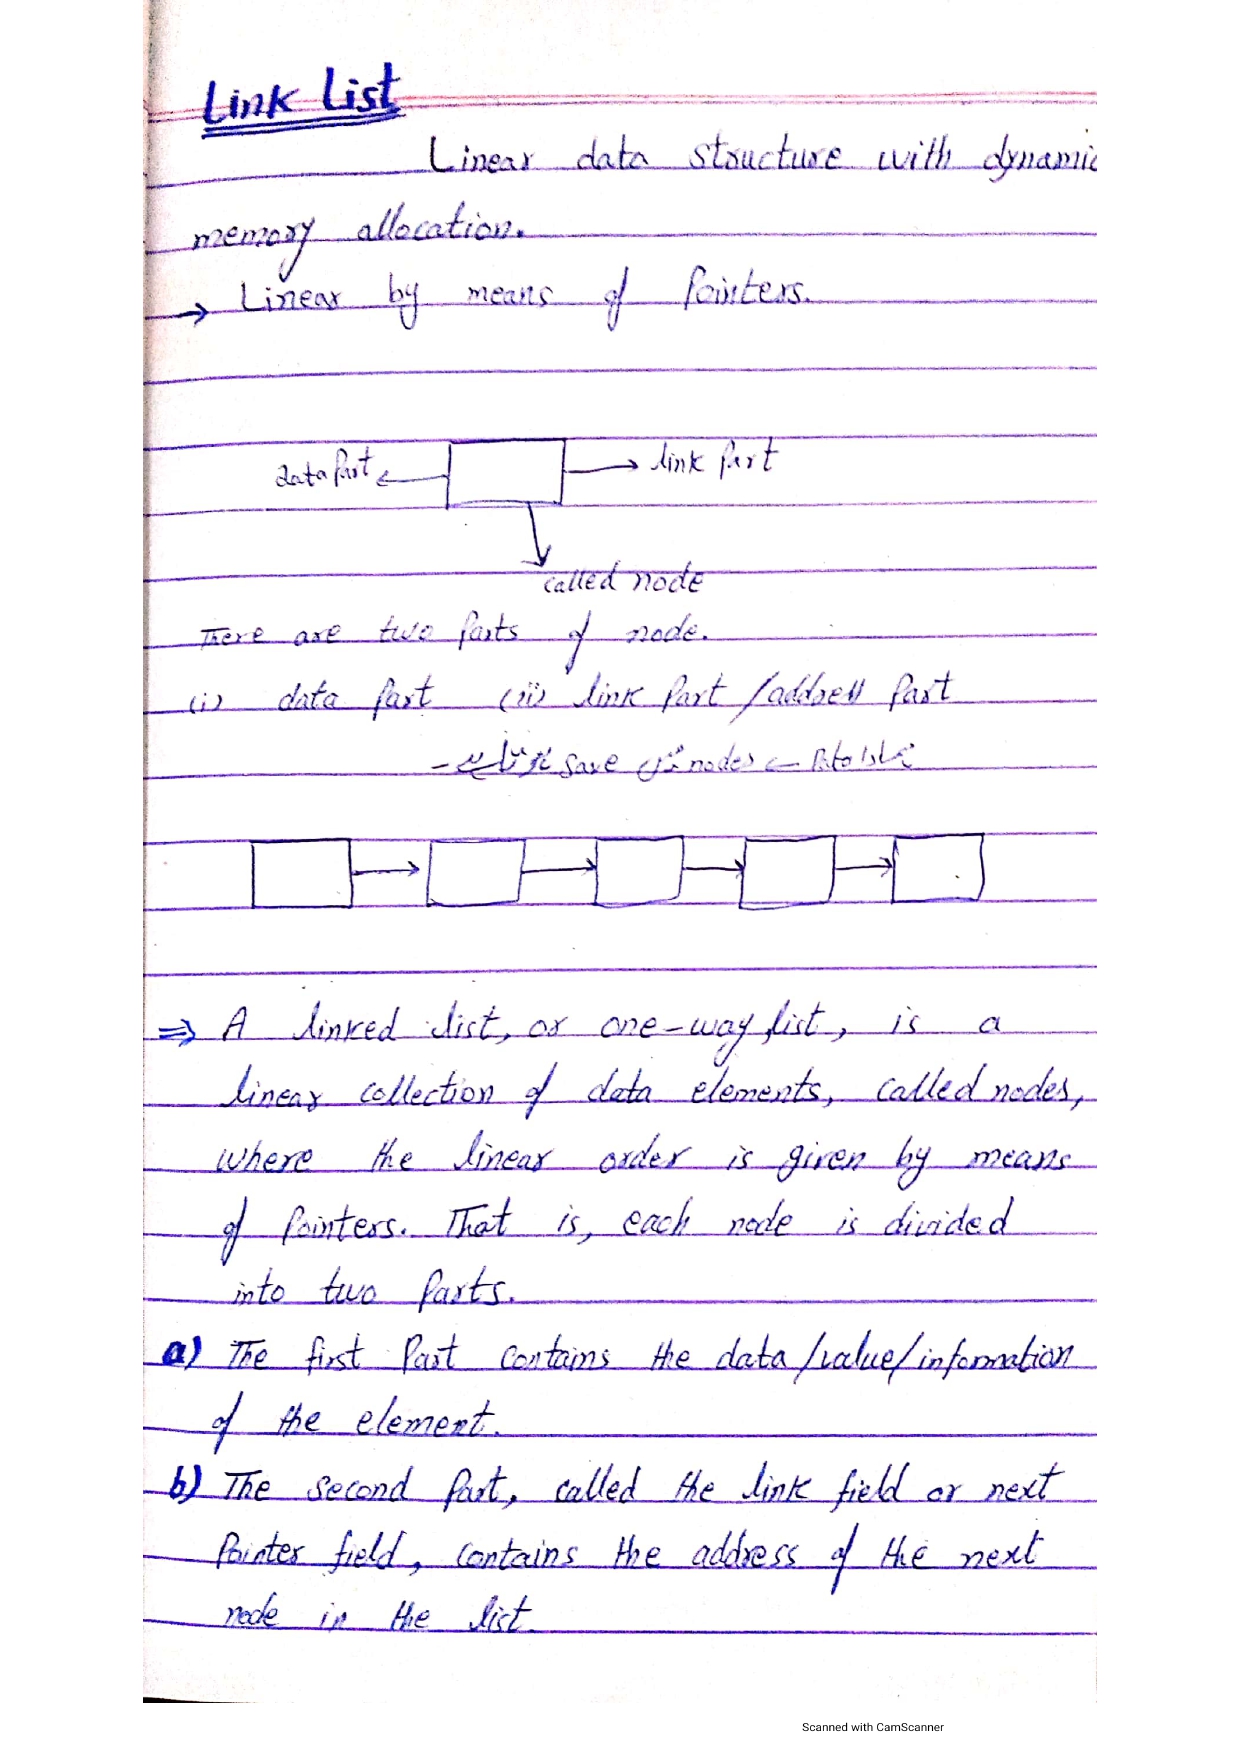 Link List
Linear data structure with dynamic
memory allocation.
→ Linear by means of Pointers.
data Part ← → link Part
called node
There are two Parts of node.
(i) data part (ii) link Part / address Part
save nodes ← Data
⇒ A linked list, or one-way list, is a
linear collection of data elements, called nodes,
where the linear order is given by means
of Pointers. That is, each node is divided
into two Parts.
a) The first Part contains the data/value/information
of the element.
b) The second Part, called the link field or next
Pointer field, contains the address of the next
node in the list.
Scanned with CamScanner